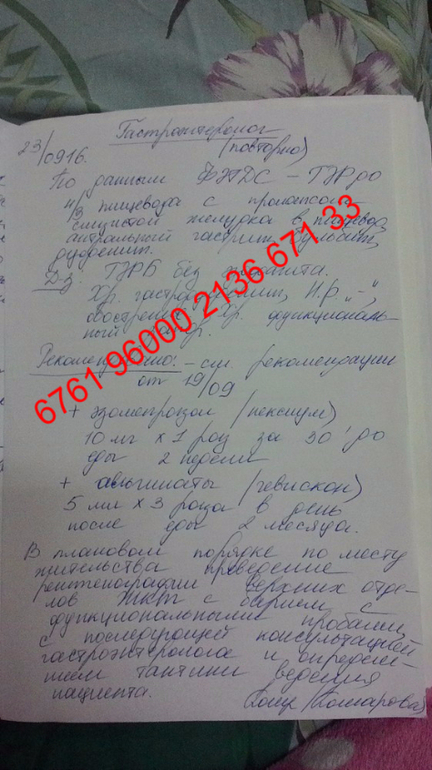 Гастроэнтеролог
23/0916. (повторно)
По данным ФЭГДС – ГЭР до
н/3 пищевода с пролапсом
слизистой желудка в пищевод,
антральный гастрит, бульбит,
дуоденит.
Дз. ГЭРБ без эзофагита.
Хр. гастродуоденит, H.P. "-",
обострение. Хр. функциональ-
ный
Рекомендовано: – см. рекомендации
от 19/09
+ эзомепразол (нексиум)
10 мг х 1 раз за 30' до
еды 2 недели
+ альгинаты (гевискон)
5 мл х 3 раза в день
после еды 2 месяца.
В плановом порядке по месту
жительства проведение
рентгенографии верхних отде-
лов ЖКТ с барием с
функциональными пробами,
с последующей консультацией
гастроэнтеролога и определе-
нием тактики ведения
пациента. (Комарова)
6761 96000 2136 671 33